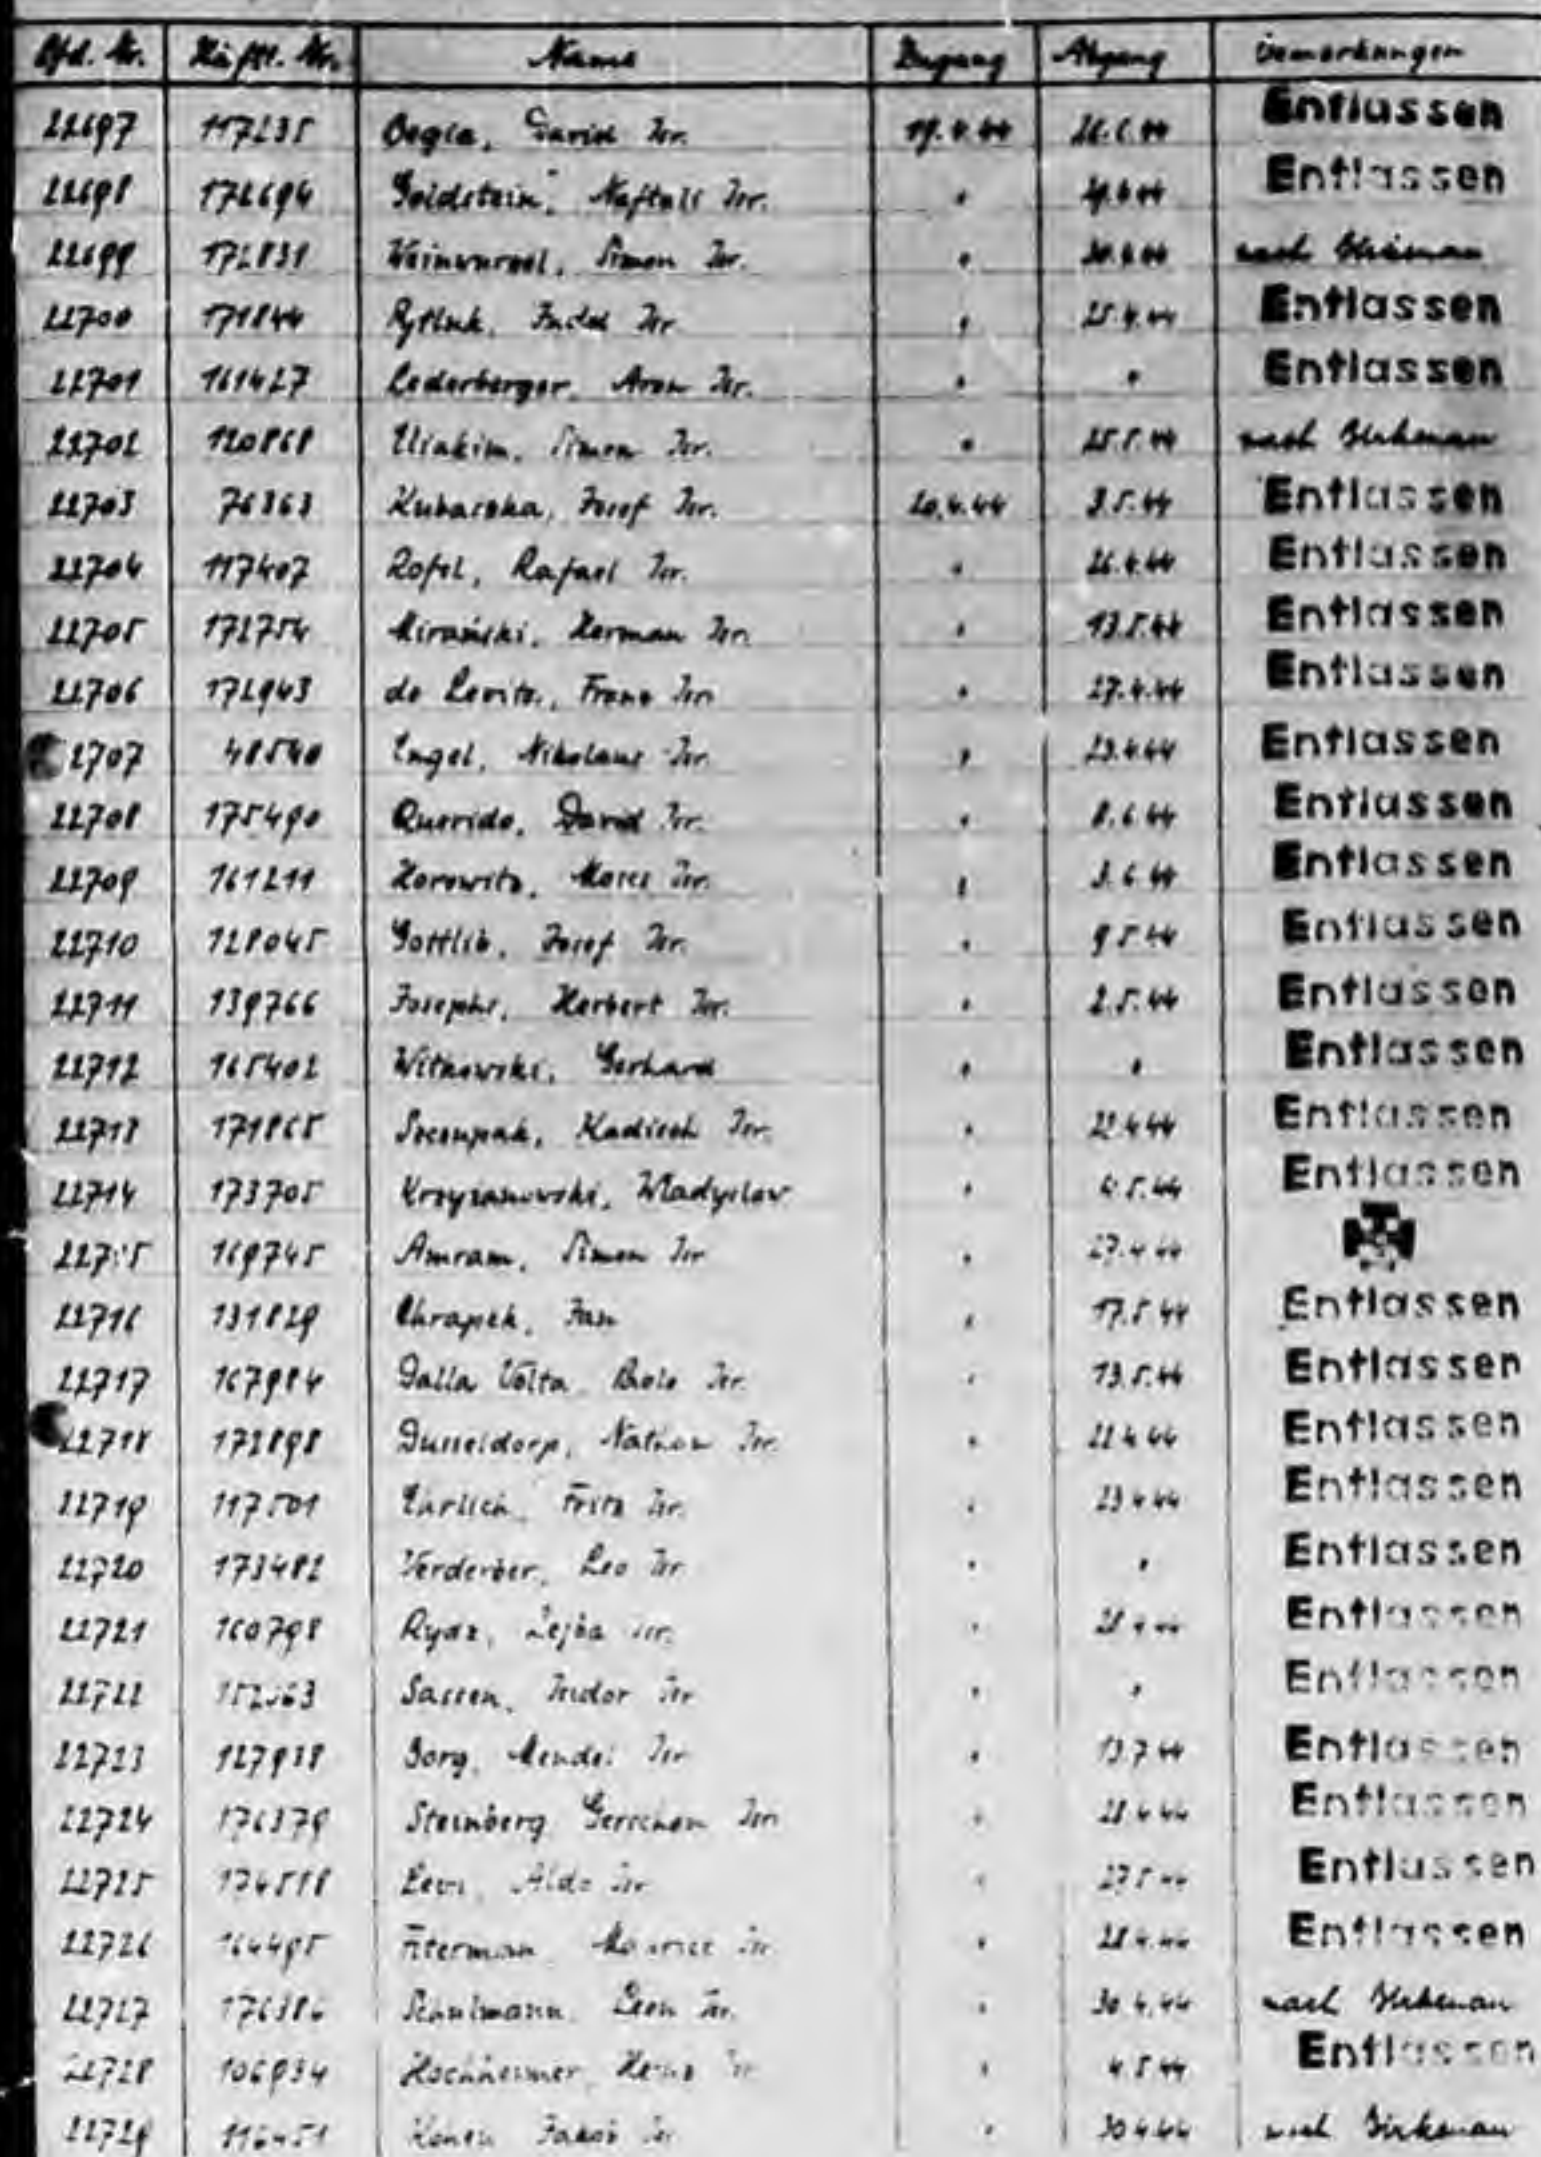 Lfd. Nr. Häftl. Nr. Name Zugang Abgang Bemerkungen
22697 117235 David Isr. 19.4.44 Entlassen
22698 172694 Goldstein, Naftali Isr. " 29.4.44 Entlassen
22699 172831 Weinwurzel, Simon Isr. " 30.4.44 nach Birkenau
22700 171844 Rytluk, Judel Isr. " 25.4.44 Entlassen
22701 161427 Lederberger, Aron Isr. " " Entlassen
22702 120868 Eliakim, Simon Isr. " 25.5.44 nach Birkenau
22703 76363 Kubaczka, Josef Isr. 20.4.44 3.5.44 Entlassen
22704 117407 Rofel, Rafael Isr. " 26.4.44 Entlassen
22705 172754 Miranski, Herman Isr. " 13.5.44 Entlassen
22706 172943 de Levita, Frans Isr. " 27.4.44 Entlassen
22707 48540 Engel, Nikolaus Isr. " 23.4.44 Entlassen
22708 175490 Querido, David Isr. " 8.6.44 Entlassen
22709 161211 Horowitz, Moses Isr. " 3.6.44 Entlassen
22710 128045 Gottlib, Josef Isr. " 9.5.44 Entlassen
22711 139766 Josephs, Herbert Isr. " 2.5.44 Entlassen
22712 165402 Witkowski, Gerhard " " Entlassen
22713 171865 Soczupak, Kadisch Isr. " 22.4.44 Entlassen
22714 173705 Krzyzanowski, Wladyslaw " 4.5.44 Entlassen
22715 169745 Amram, Simon Isr. " 27.4.44
22716 131829 Chrapek, Jan " 17.5.44 Entlassen
22717 167984 Dalla Volta, Isr. " 13.5.44 Entlassen
22718 172898 Dusseldorp, Nathan Isr. " 22.4.44 Entlassen
22719 117501 Ehrlich, Fritz Isr. " 23.4.44 Entlassen
22720 173482 Verderber, Leo Isr. " " Entlassen
22721 160798 Rydz, Lejba Isr. " 28.4.44 Entlassen
22722 Sassen, Isidor Isr. " " Entlassen
22723 127938 Borg, Mendel Isr. " 13.7.44 Entlassen
22724 176379 Steinberg Gerschon Isr. " 28.4.44 Entlassen
22725 174518 Levi, Aldo Isr. " 27.5.44 Entlassen
22726 164495 Fiterman Maurice Isr. " 28.4.44 Entlassen
22727 176386 Schulmann, Leon Isr. " 30.4.44 nach Birkenau
22728 106934 Hochheimer, Heinz Isr. " 4.5.44 Entlassen
22729 116451 Jakob Isr. " 30.4.44 nach Birkenau